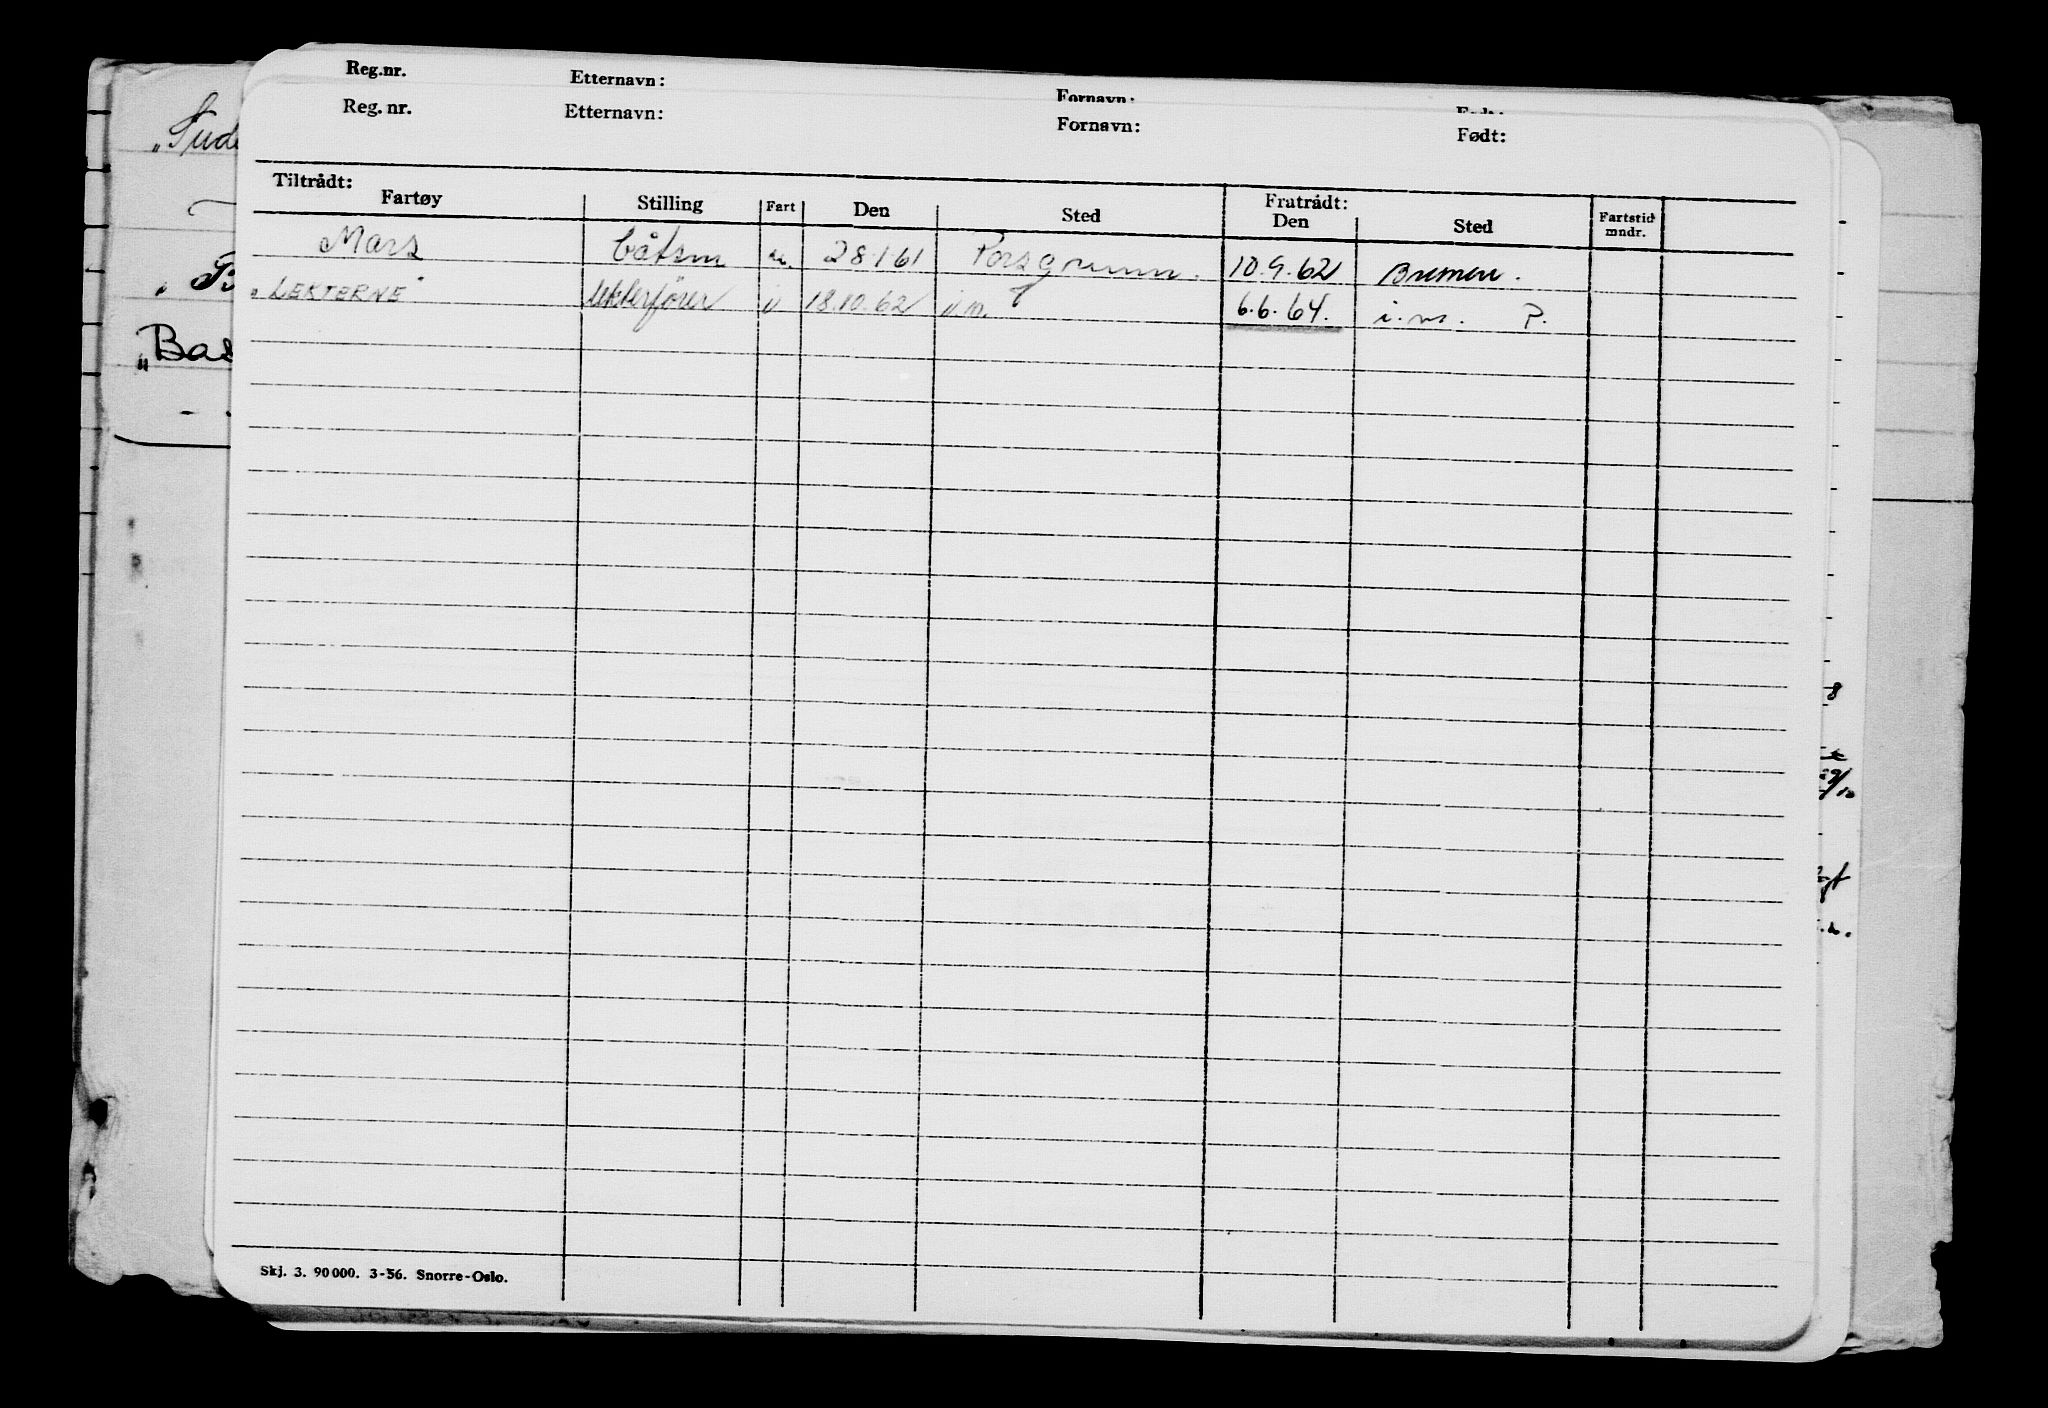 Reg.nr. Etternavn: Fornavn:
Reg. nr. Etternavn: Fornavn: Født:
Tiltrådt: Fratrådt:
Fartøy Stilling Fart Den Sted Den Sted Fartstid mndr.
Mars båtsm u. 28.1.61 Porsgrunn. 10.9.62 Bremen.
"LEKTERNE" lekterfører 18.10.62 6.6.64. P.
Skj. 3. 90 000. 3-56. Snorre-Oslo.